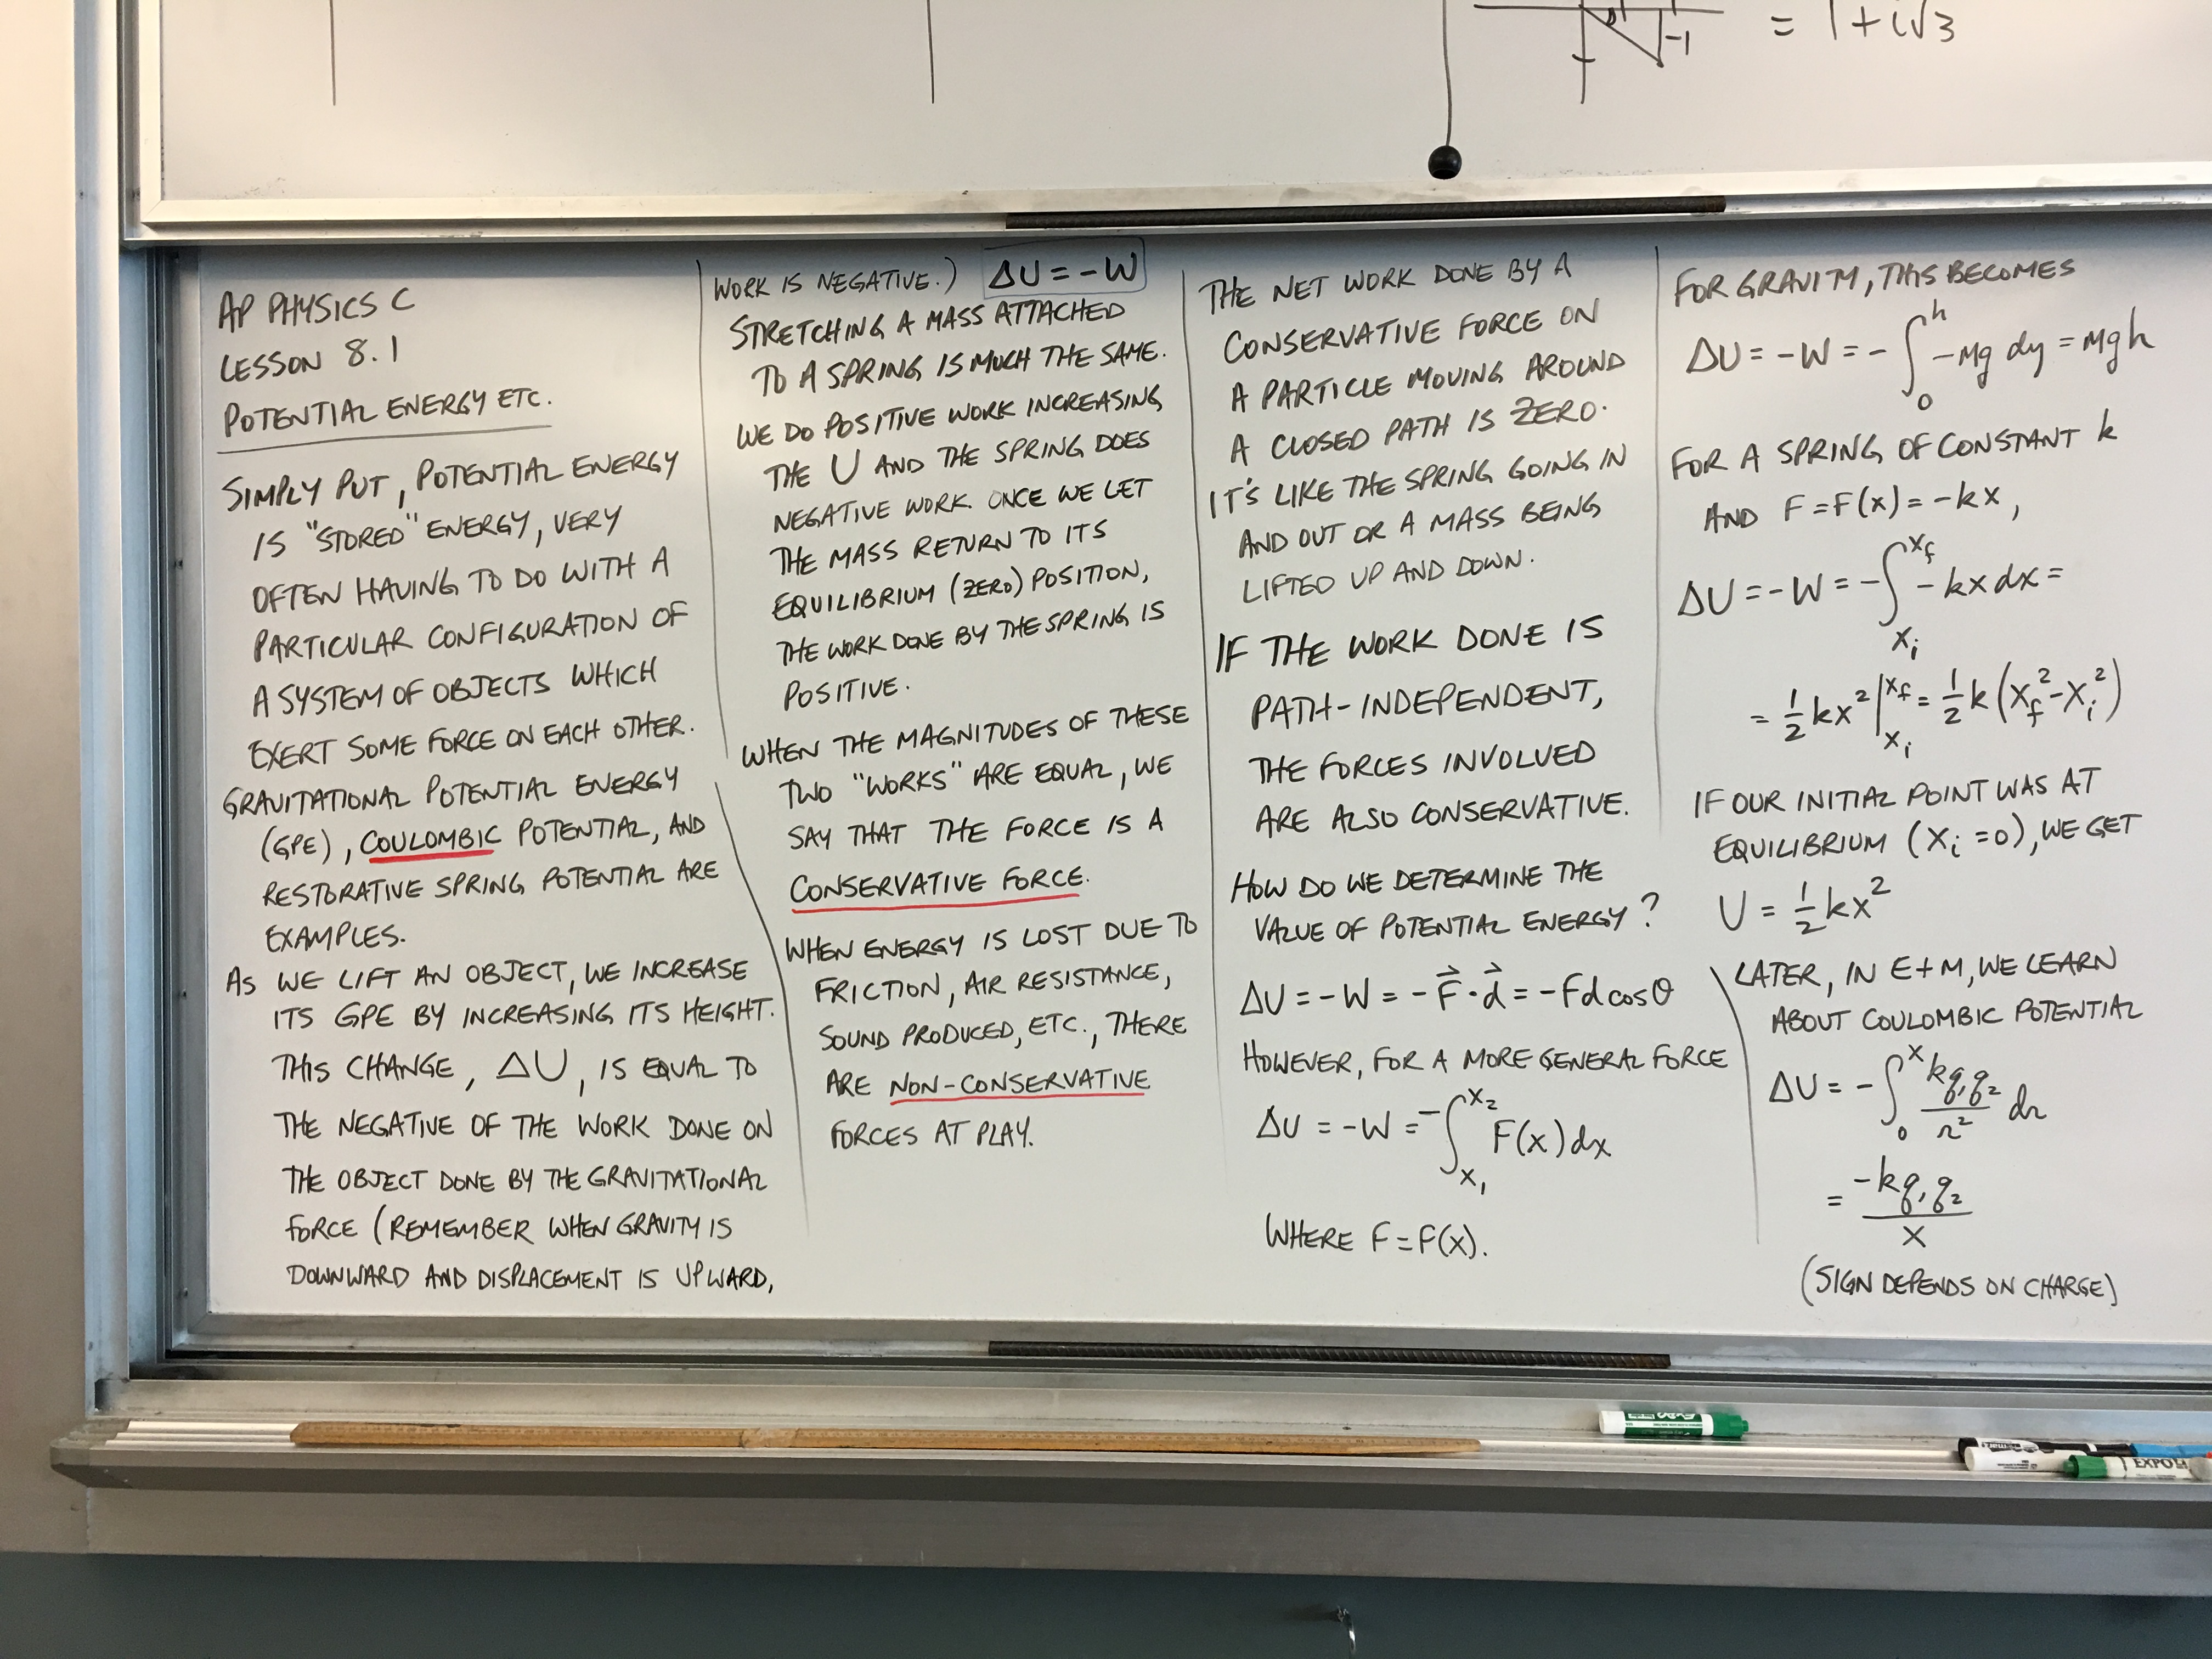 -1
= 1+i√3
AP PHYSICS C
LESSON 8.1
POTENTIAL ENERGY ETC.
SIMPLY PUT, POTENTIAL ENERGY
IS "STORED" ENERGY, VERY
OFTEN HAVING TO DO WITH A
PARTICULAR CONFIGURATION OF
A SYSTEM OF OBJECTS WHICH
EXERT SOME FORCE ON EACH OTHER.
GRAVITATIONAL POTENTIAL ENERGY
(GPE), COULOMBIC POTENTIAL, AND
RESTORATIVE SPRING POTENTIAL ARE
EXAMPLES.
AS WE LIFT AN OBJECT, WE INCREASE
ITS GPE BY INCREASING ITS HEIGHT.
THIS CHANGE, ΔU, IS EQUAL TO
THE NEGATIVE OF THE WORK DONE ON
THE OBJECT DONE BY THE GRAVITATIONAL
FORCE (REMEMBER WHEN GRAVITY IS
DOWNWARD AND DISPLACEMENT IS UPWARD,
WORK IS NEGATIVE.) ΔU = -W
STRETCHING A MASS ATTACHED
TO A SPRING IS MUCH THE SAME.
WE DO POSITIVE WORK INCREASING
THE U AND THE SPRING DOES
NEGATIVE WORK. ONCE WE LET
THE MASS RETURN TO ITS
EQUILIBRIUM (ZERO) POSITION,
THE WORK DONE BY THE SPRING IS
POSITIVE.
WHEN THE MAGNITUDES OF THESE
TWO "WORKS" ARE EQUAL, WE
SAY THAT THE FORCE IS A
CONSERVATIVE FORCE.
WHEN ENERGY IS LOST DUE TO
FRICTION, AIR RESISTANCE,
SOUND PRODUCED, ETC., THERE
ARE NON-CONSERVATIVE
FORCES AT PLAY.
THE NET WORK DONE BY A
CONSERVATIVE FORCE ON
A PARTICLE MOVING AROUND
A CLOSED PATH IS ZERO.
IT'S LIKE THE SPRING GOING IN
AND OUT OR A MASS BEING
LIFTED UP AND DOWN.
IF THE WORK DONE IS
PATH-INDEPENDENT,
THE FORCES INVOLVED
ARE ALSO CONSERVATIVE.
HOW DO WE DETERMINE THE
VALUE OF POTENTIAL ENERGY?
ΔU = -W = -F⃗·d⃗ = -Fd cosθ
HOWEVER, FOR A MORE GENERAL FORCE
ΔU = -W = -∫_{x₁}^{x₂} F(x)dx
WHERE F=F(x).
FOR GRAVITY, THIS BECOMES
ΔU = -W = -∫_0^h -Mg dy = Mgh
FOR A SPRING OF CONSTANT k
AND F=F(x) = -kx,
ΔU = -W = -∫_{x_i}^{x_f} -kx dx =
= 1/2 kx² |_{x_i}^{x_f} = 1/2 k(x_f² - x_i²)
IF OUR INITIAL POINT WAS AT
EQUILIBRIUM (x_i = 0), WE GET
U = 1/2 kx²
LATER, IN E+M, WE LEARN
ABOUT COULOMBIC POTENTIAL
ΔU = -∫_0^x kq₁q₂/r² dr
= -kq₁q₂/x
(SIGN DEPENDS ON CHARGE)
EXPO